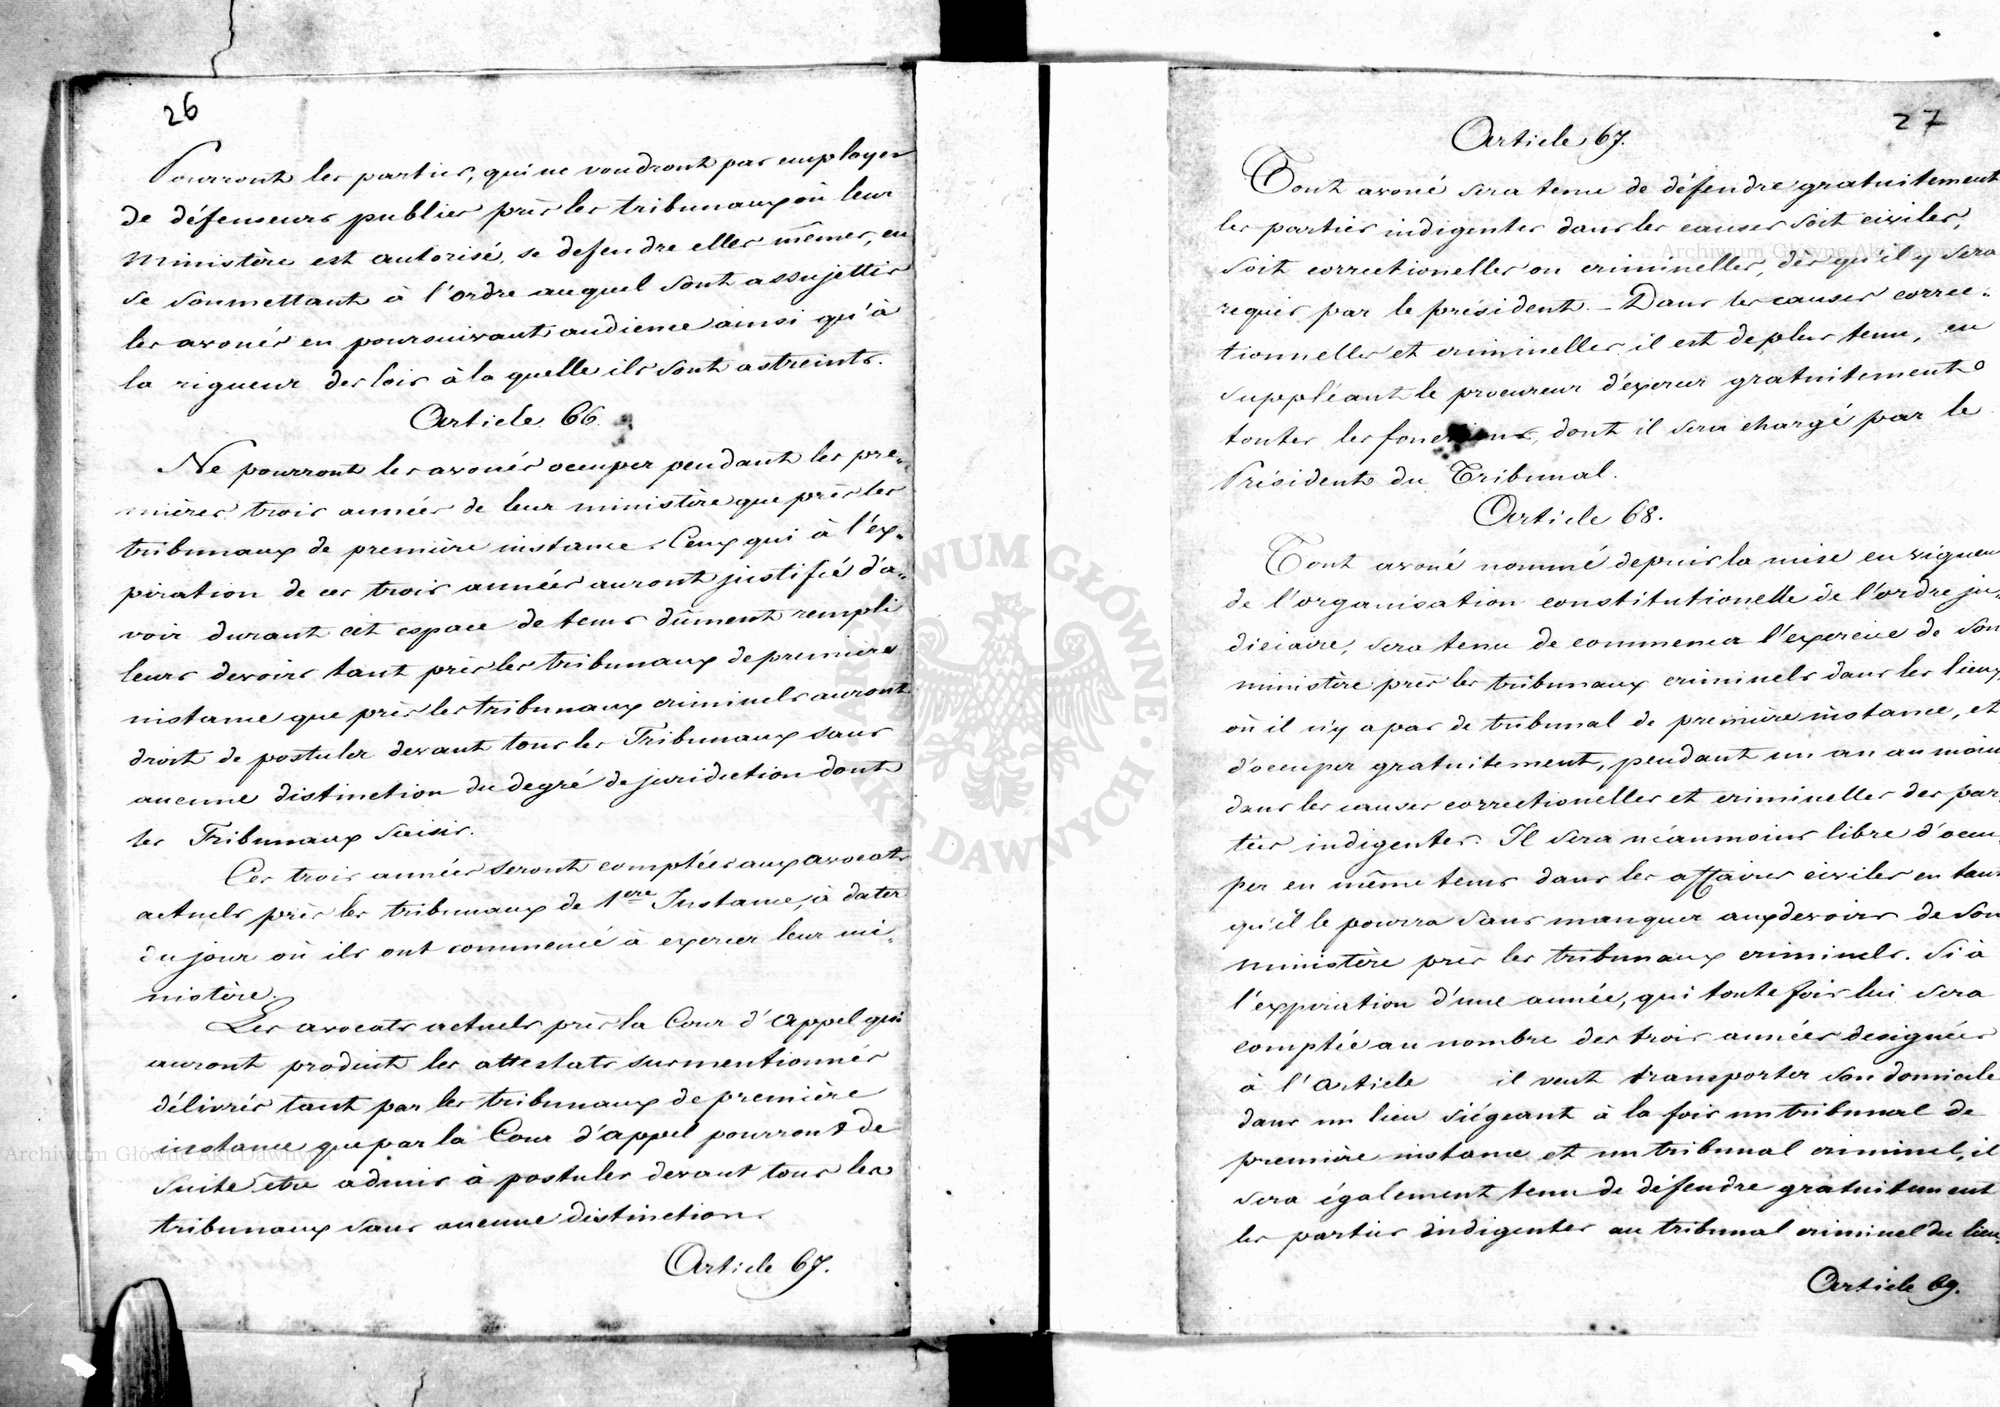 26
Pourront les parties, qui ne voudront pas employer
de défenseurs publics près les tribunaux où leur
ministère est autorisé, se defendre elles mêmes, en
se soumettant à l'ordre auquel sont assujettis
les avoués en poursuivant audience ainsi qu'à
la rigueur des lois à la quelle ils sont astreints.
Article 66.
Ne pourront les avoués occuper pendant les pre-
mières trois années de leur ministère que près les
tribunaux de première instance. Ceux qui à l'ex-
piration de ces trois années auront justifié d'a-
voir durant cet espace de tems dûment rempli
leurs devoirs tant près les tribunaux de première
instance que près les tribunaux criminels auront
droit de postuler devant tous les Tribunaux sans
aucune distinction du degré de juridiction dont
les Tribunaux saisis.
Ces trois années seront comptées aux avocats
actuels près les tribunaux de 1ere Instance, à dater
du jour où ils ont commencé à exercer leur mi-
nistère.
Les avocats actuels près la Cour d'Appel qui
auront produit les attestats susmentionnés
délivrés tant par les tribunaux de première
instance que par la Cour d'appel pourront de
suite être admis à postuler devant tous les
tribunaux sans aucune distinction.
Article 67.
27
Article 67.
Tout avoué sera tenu de défendre gratuitement
les parties indigentes dans les causes soit civiles,
soit correctionelles ou criminelles, dès qu'il y sera
requis par le président. - Dans les causes correc-
tionnelles et criminelles il est de plus tenu, en
suppléant le procureur d'exercer gratuitement
toutes les fonctions, dont il sera chargé par le
Président du Tribunal.
Article 68.
Tout avoué nommé depuis la mise en vigueur
de l'organisation constitutionelle de l'ordre ju-
diciaire, sera tenu de commencer l'exercice de son
ministère près les tribunaux criminels dans les lieux
où il n'y a pas de tribunal de première instance, et
d'occuper gratuitement, pendant un an au moins
dans les causes correctionelles et criminelles des par-
ties indigentes. Il sera néanmoins libre d'occu-
per en même tems dans les affaires civiles en tant
qu'il le pourra sans manquer aux devoirs de son
ministère près les tribunaux criminels. Si à
l'expiration d'une année, qui toute fois lui sera
comptée au nombre des trois années designées
à l'Article il veut transporter son domicile
dans un lieu siégeant à la fois un tribunal de
première instance et un tribunal criminel, il
sera également tenu de défendre gratuitement
les parties indigentes au tribunal criminel du lieu.
Article 69.
ARCHIWUM GŁÓWNE AKT DAWNYCH
Archiwum Główne Akt Dawnych
Archiwum Główne Akt Dawnych